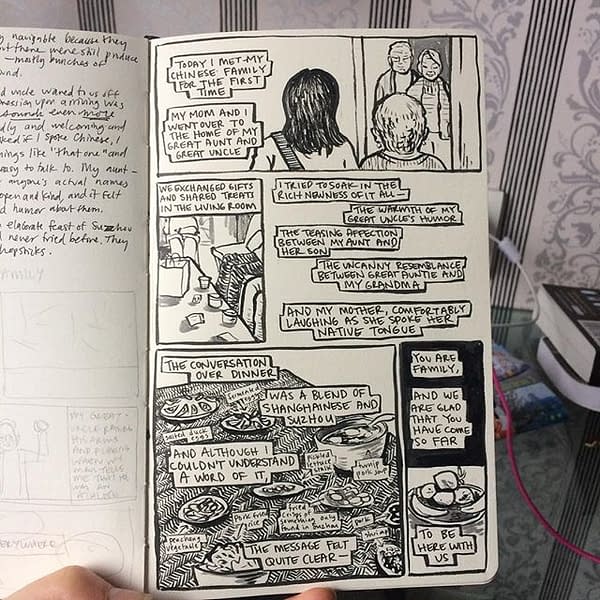 navigable because they
were still produce
—mostly bunches of
uncle wanted to us off
upon arriving was
even more
and welcoming and
if I spoke Chinese, I
like "that one" and
easy to talk to. My aunt—
anyone's actual names
open and kind, and it felt
humor about them.
elaborate feast of Suzhou
never tried before. They
chopsticks.
FAMILY
MY GREAT-
UNCLE RAISES
HIS ARMS
AND
WHEN MY
MOM TELLS
ME THAT HE
WAS AN
TODAY I MET MY
CHINESE FAMILY
FOR THE FIRST
TIME
MY MOM AND I
WENT OVER TO
THE HOME OF MY
GREAT AUNT AND
GREAT UNCLE
WE EXCHANGED GIFTS
AND SHARED TREATS
IN THE LIVING ROOM
I TRIED TO SOAK IN THE
RICH NEWNESS OF IT ALL—
THE WARMTH OF MY
GREAT UNCLE'S HUMOR
THE TEASING AFFECTION
BETWEEN MY AUNT AND
HER SON
THE UNCANNY RESEMBLANCE
BETWEEN GREAT AUNTIE AND
MY GRANDMA
AND MY MOTHER, COMFORTABLY
LAUGHING AS SHE SPOKE HER
NATIVE TONGUE
THE CONVERSATION
OVER DINNER
WAS A BLEND OF
SHANGHAINESE AND
SUZHOU
salted duck
eggs
AND ALTHOUGH I
COULDN'T UNDERSTAND
A WORD OF IT,
pickled
lotus
turnip
pork soup
pork fried
rice
fried
crisps of
something only
found in Suzhou
pork
shrimp
vegetables
THE MESSAGE FELT
QUITE CLEAR—
YOU ARE
FAMILY,
AND WE
ARE GLAD
THAT YOU
HAVE COME
SO FAR
TO BE
HERE WITH
US